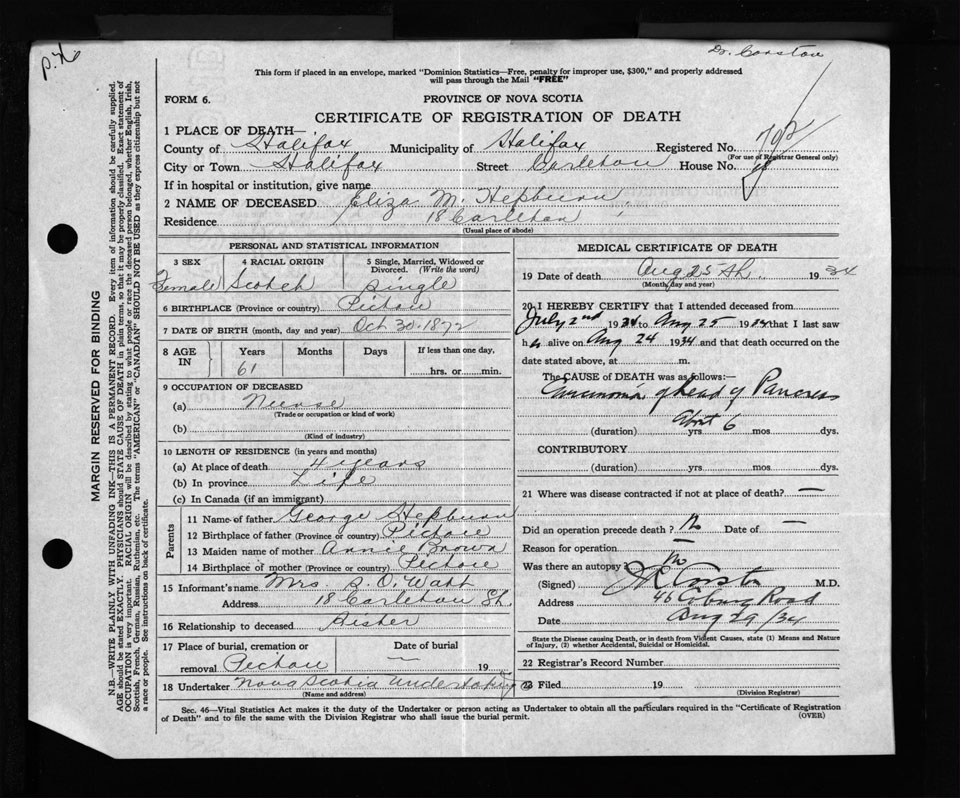 Dr. Corston
This form if placed in an envelope, marked "Dominion Statistics—Free, penalty for improper use, $300," and properly addressed
will pass through the Mail "FREE"
FORM 6.
PROVINCE OF NOVA SCOTIA
CERTIFICATE OF REGISTRATION OF DEATH
1 PLACE OF DEATH—
County of Halifax Municipality of Halifax Registered No. 792
(For use of Registrar General only)
City or Town Halifax Street Carleton House No.
If in hospital or institution, give name
2 NAME OF DECEASED Eliza M. Hepburn
Residence 18 Carleton
(Usual place of abode)
PERSONAL AND STATISTICAL INFORMATION
3 SEX 4 RACIAL ORIGIN 5 Single, Married, Widowed or
Divorced. (Write the word)
Female Scotch Single
6 BIRTHPLACE (Province or country) Pictou
7 DATE OF BIRTH (month, day and year) Oct 30-1872
8 AGE IN Years Months Days If less than one day,
61 hrs. or min.
9 OCCUPATION OF DECEASED
(a) Nurse
(Trade or occupation or kind of work)
(b)
(Kind of industry)
10 LENGTH OF RESIDENCE (in years and months)
(a) At place of death 4 years
(b) In province Life
(c) In Canada (if an immigrant)
Parents
11 Name of father George Hepburn
12 Birthplace of father (Province or country) Pictou
13 Maiden name of mother Annie Brown
14 Birthplace of mother (Province or country) Pictou
15 Informant's name Mrs. S. O. Watt
Address 18 Carleton St.
16 Relationship to deceased Sister
17 Place of burial, cremation or Date of burial
removal Pictou — 19
18 Undertaker Nova Scotia Undertaking Co
(Name and address)
MEDICAL CERTIFICATE OF DEATH
19 Date of death Aug 25th. 1934
(Month, day and year)
20 I HEREBY CERTIFY that I attended deceased from
July 2nd 1934 to Aug 25 1934 that I last saw
her alive on Aug 24 1934 and that death occurred on the
date stated above, at m.
The CAUSE of DEATH was as follows:—
Carcinoma of head of Pancreas
About 6
(duration) yrs. mos. dys.
CONTRIBUTORY
(duration) yrs. mos. dys.
21 Where was disease contracted if not at place of death? —
Did an operation precede death? No Date of —
Reason for operation —
Was there an autopsy? No
(Signed) J R Corston M.D.
Address 46 Coburg Road
Date Aug 29/34
State the Disease causing Death, or in death from Violent Causes, state (1) Means and Nature
of Injury, (2) whether Accidental, Suicidal or Homicidal.
22 Registrar's Record Number
23 Filed 19
(Division Registrar)
Sec. 46—Vital Statistics Act makes it duty of the Undertaker or person acting as Undertaker to obtain all the particulars required in the "Certificate of Registration
of Death" and to file the same with the Division Registrar who shall issue the burial permit.
(OVER)
MARGIN RESERVED FOR BINDING
N.B.—WRITE PLAINLY WITH UNFADING INK—THIS IS A PERMANENT RECORD. Every item of information should be carefully supplied.
AGE should be stated EXACTLY. PHYSICIANS should STATE CAUSE OF DEATH in plain terms, so that it may be properly classified. Exact statement of
OCCUPATION is very important. RACIAL ORIGIN will be described by stating to what people or race the deceased person belonged, whether English, Irish,
Scottish, French, German, Russian, Ruthenian, etc. The terms "AMERICAN" or "CANADIAN" SHOULD NOT BE USED as they express citizenship but not
a race or people. See instructions on back of certificate.